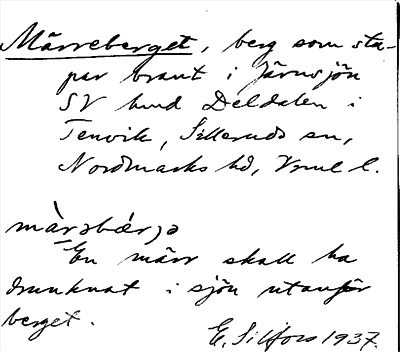 Märreberget, berg som stu-
par brant i Järnsjön
SV hund Deldalen i
Tenvik, Silleruds sn,
Nordmarks hd, Vrml l.
màrəbǽrjə
En märr skall ha
drunknat i sjön utanför
berget.
E. Silfors 1937.